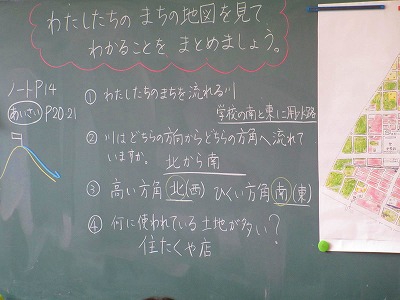 わたしたちの まちの地図を見て
わかることを まとめましょう。
ノートP14
あいさい P20.21
① わたしたちのまちを流れる川
学校の南と東に用水路
② 川はどちらの方向からどちらの方角へ流れて
いますか。 北から南
③ 高い方角 北(西) ひくい方角 南(東)
④ 何に使われている土地が多い?
住たくや店